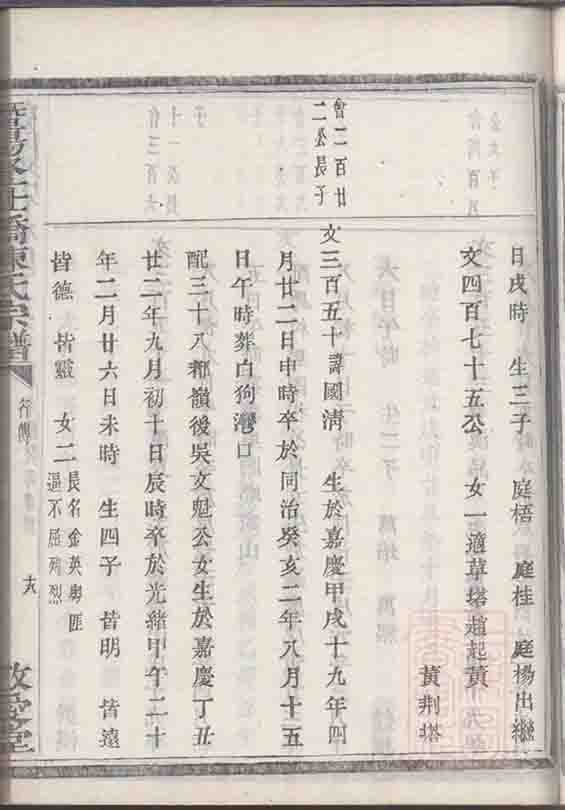 日戌時　生三子　庭梧　庭桂　庭楊出繼
文四百七十五公　女一適草塔趙起黃
黃荆塔
會二百廿
二公長子
文三百五十諱國清　生於嘉慶甲戌十九年四
月廿二日申時卒於同治癸亥二年八月十五
日午時葬白狗灣口
配三十八都嶺後吳文魁公女生於嘉慶丁丑
廿二年九月初十日辰時卒於光緒甲午二十
年二月廿六日未時　生四子　皆明　皆遠
皆德　皆靈　女二
長名金英粵匪
逼不屈列烈
橋陳氏宗譜
行傳
敬愛堂